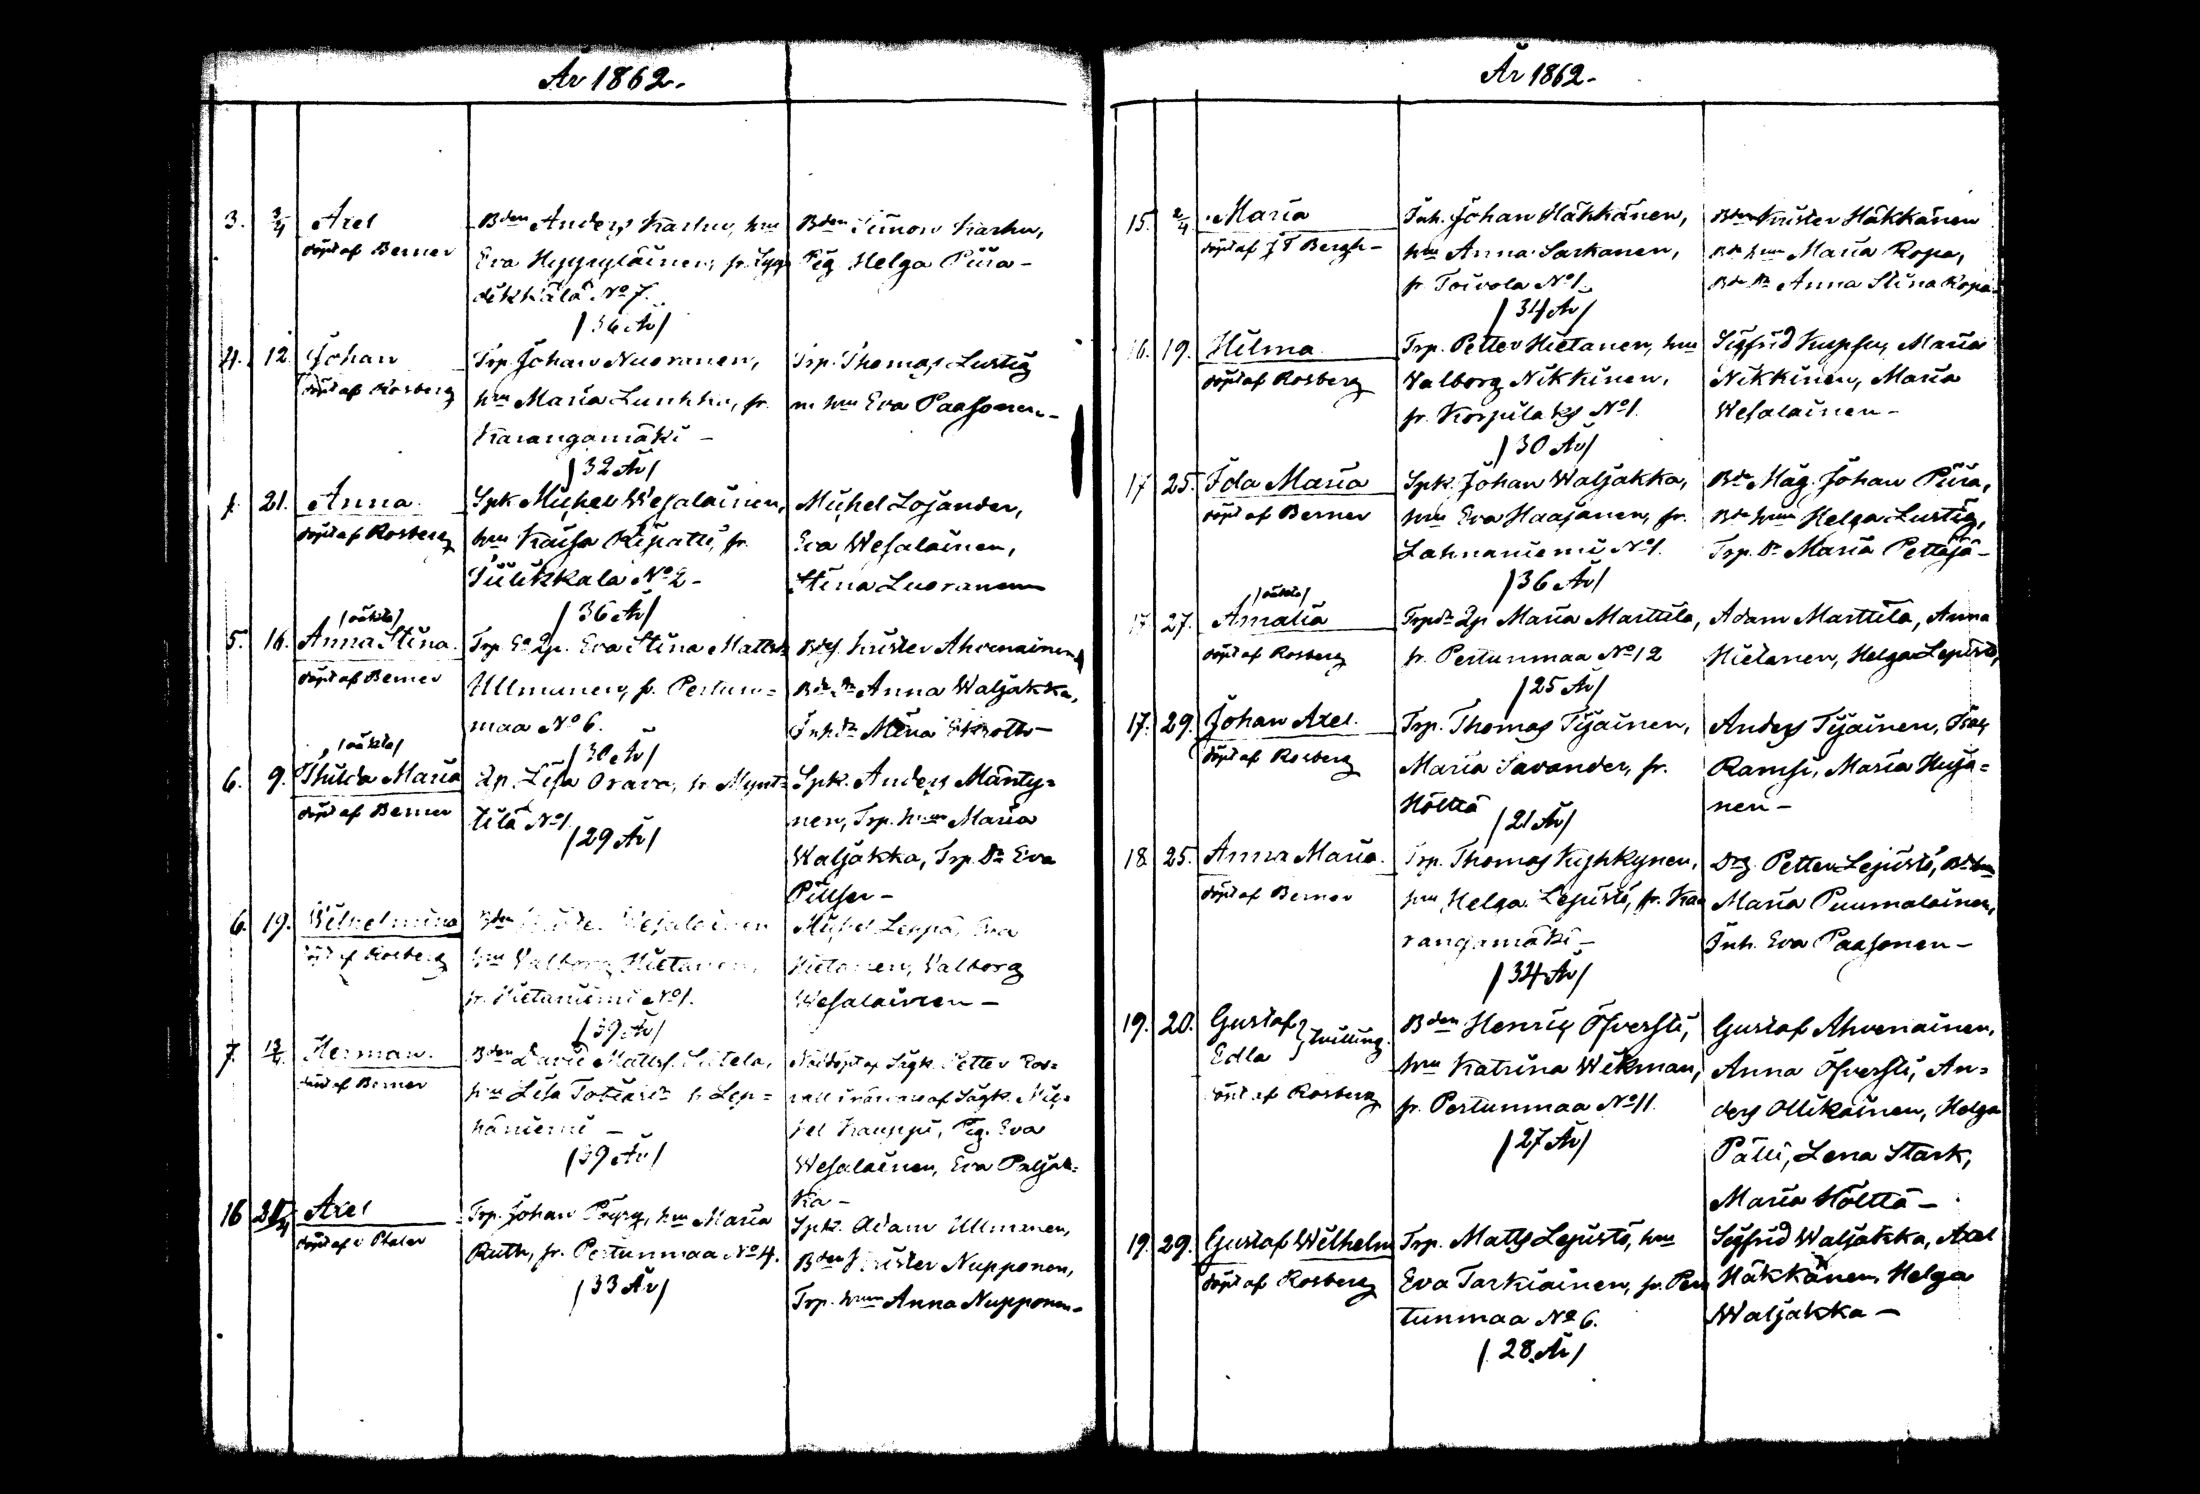 År 1862.
3. 3/4 Axel
döpt af Berner
Bden Anders Karhu, hm
Eva Hyyryläinen, fr. Lyy
dikkälä No 7.
/36 År/
Bden Simon Karhu,
Pig Helga Piira-
4. 12. Johan
döpt af Rosberg
Trp. Johan Nuoranen,
hm Maria Lunkka, fr.
Karangamäki -
/32 År/
Trp. Thomas Lustig
m hm Eva Paasonen-
21. Anna
döpt af Rosberg
Spk Michel Wesalainen,
hm Kaisa Ripatti, fr.
Tiilikkala No 2-
/36 År/
Michel Lojander,
Eva Wesalainen,
Stina Luoranen
5. 16. /oäkta/
Anna Stina.
döpt af Berner
Trp. Eva Stina Mattsdr
Ullmanen, fr. Pertun=
maa No 6.
/30 År/
Krister Ahvenainen
Anna Waljakka,
Mina
6. 9. /oäkta/
Thilda Maria
döpt af Berner
Qp. Lisa Orava, fr. Mynt=
tilä No 1.
/29 År/
Spk. Anders Mänty=
nen, Trp. hm Maria
Waljakka, Trp. Dr Eva
6. 19. Wilhelmina
döpt af Rosberg
Bden Wesalainen
hm Valborg Hietanen,
fr. Hietaniemi No 1.
/39 År/
Michel Leppä, Eva
Hietanen, Valborg
Wesalainen -
7. Herman.
döpt af Berner
Bden David Mattss.
hm Lisa fr. Lep=
häniemi -
/39 År/
Nöddöpt af Petter Ros=
af
hel Kauppi, Pig. Eva
Wesalainen, Eva Paljak=
ka -
16 Axel
döpt af
Trp. Johan Pryy, hm Maria
Ruth, fr. Pertunmaa No 4.
/33 År/
Spk. Adam Ullmanen,
Bden Krister Nupponen,
Trp. hm Anna Nupponen-
År 1862-
15. 2/4 Maria
döpt af J T Bergh-
Inh. Johan Häkkänen,
hm Anna Sarkanen,
fr. Toivola No 1.
/34 År/
Bden Krister Häkkänen
Bde hm Maria Ropa,
Bde Dr Anna Stina Ropa-
16. 19. Hilma
döpt af Rosberg
Trp. Petter Hietanen, hm
Valborg Nikkinen,
fr. Korpilaks No 1.
/30 År/
Sigfrid Maria
Nikkinen, Maria
Wesalainen-
17 25. Ida Maria
döpt af Berner
Spk. Johan Waljakka,
hm Eva Haajanen, fr.
Lahnaniemi No 1.
/36 År/
Bde Måg. Johan Piira,
Bde hm Helga Lustig,
Trp. Dr Maria Pettäjä-
17 27. /oäkta/
Amalia
döpt af Rosberg
Trpdr Qp Maria Marttila,
fr. Pertunmaa No 12
/25 År/
Adam Marttila, Anna
Hietanen, Helga Lepistö,
17. 29. Johan Axel.
döpt af Rosberg
Trp. Thomas Tijainen,
Maria Savander, fr.
Hölttä
/21 År/
Anders Tijainen, Isac
Ramsi, Maria Huja=
nen-
18. 25. Anna Maria.
döpt af Berner
Trp. Thomas Kyhkynen,
hm Helga Lepistö, fr. Ka
rangamäki-
/34 År/
Drg. Petter Lepistö, Bde hm
Maria Puumalainen,
Inh. Eva Paasonen-
19. 20. Gustaf
Edla } Tvilling.
döpt af Rosberg
Bden Henric Öfversti,
hm Katrina Wikman,
fr. Pertunmaa No 11.
/27 År/
Gustaf Ahvenainen,
Anna Öfversti, An=
ders Ollikainen, Helga
Pälli, Lena Stark,
Maria Hölttä-
19. 29. Gustaf Wilhelm
döpt af Rosberg
Trp. Matts Lepistö, hm
Eva Tarkiainen, fr. Per
tunmaa No 6.
/28 År/
Sigfrid Waljakka, Axel
Häkkänen, Helga
Waljakka -